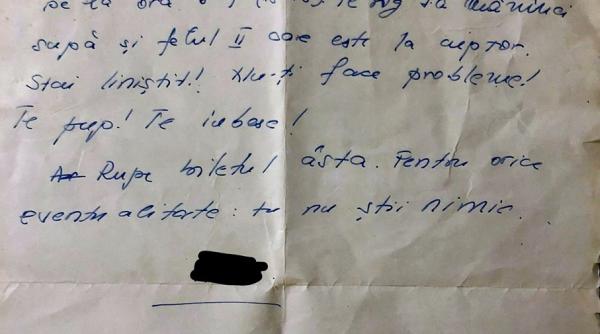 pe la ora 6 te rog să mănînci
supă și felul II care este la cuptor.
Stai liniștit! Nu-ți face probleme!
Te pup! Te iubesc!
Rupe biletul ăsta. Pentru orice
eventualitate: tu nu știi nimic.